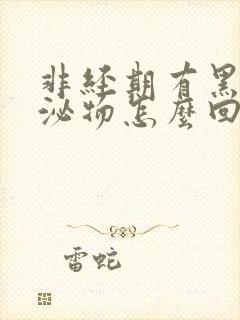 非經期有黑
泌物怎麼回
雷蛇